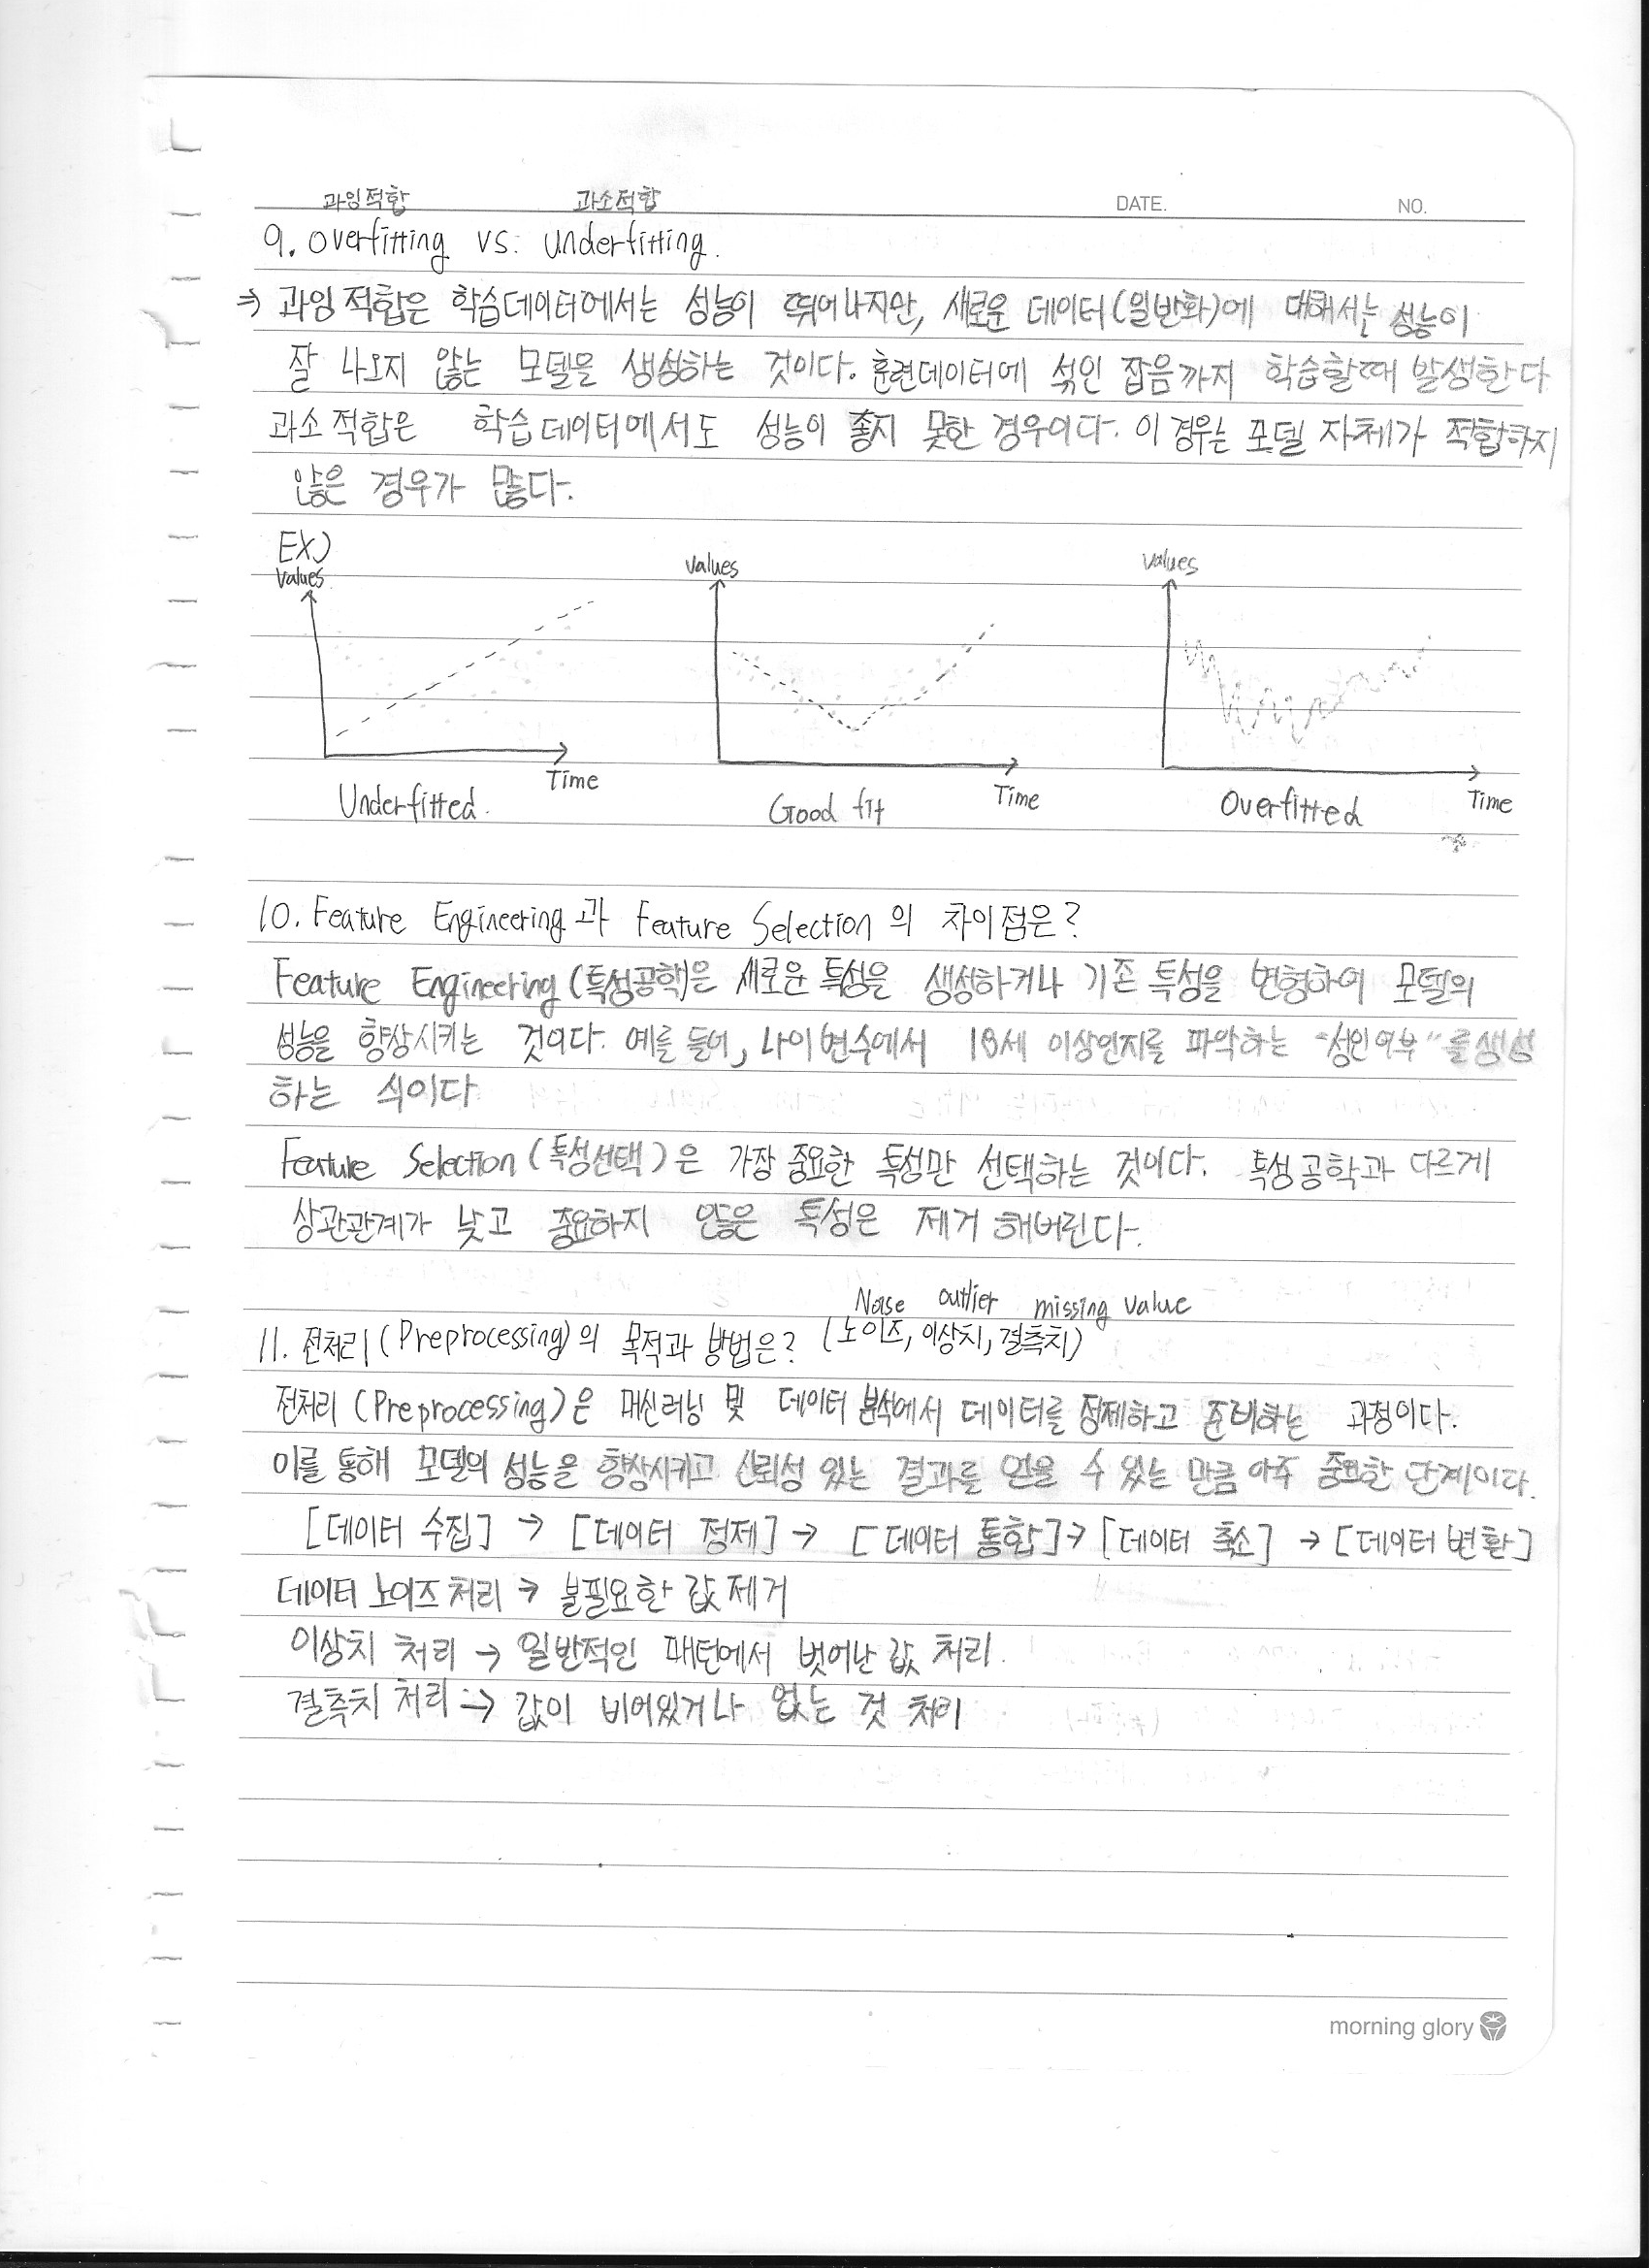 과잉적합 과소적합
DATE. NO.
9. overfitting vs. underfitting.
⇒ 과잉적합은 학습데이터에서는 성능이 뛰어나지만, 새로운 데이터(일반화)에 대해서는 성능이
잘 나오지 않는 모델을 생성하는 것이다. 훈련데이터에 섞인 잡음까지 학습할때 발생한다
과소적합은 학습데이터에서도 성능이 좋지 못한 경우이다. 이 경우는 모델 자체가 적합하지
않은 경우가 많다.
EX)
values values values
Time Time Time
Underfitted. Good fit Overfitted
10. Feature Engineering과 Feature Selection의 차이점은?
Feature Engineering(특성공학)은 새로운 특성을 생성하거나 기존 특성을 변형하여 모델의
성능을 향상시키는 것이다. 예를 들어, 나이 변수에서 18세 이상인지를 파악하는 "성인여부"를 생성
하는 식이다
Feature Selection(특성선택)은 가장 중요한 특성만 선택하는 것이다. 특성공학과 다르게
상관관계가 낮고 중요하지 않은 특성은 제거 해버린다.
Noise outlier missing value
11. 전처리(Preprocessing)의 목적과 방법은? (노이즈, 이상치, 결측치)
전처리(Preprocessing)은 머신러닝 및 데이터 분석에서 데이터를 정제하고 준비하는 과정이다.
이를 통해 모델의 성능을 향상시키고 신뢰성 있는 결과를 얻을 수 있는 만큼 아주 중요한 단계이다.
[데이터 수집] → [데이터 정제] → [데이터 통합] → [데이터 축소] → [데이터 변환]
데이터 노이즈 처리 → 불필요한 값 제거
이상치 처리 → 일반적인 패턴에서 벗어난 값 처리.
결측치 처리 → 값이 비어있거나 없는 것 처리
morning glory